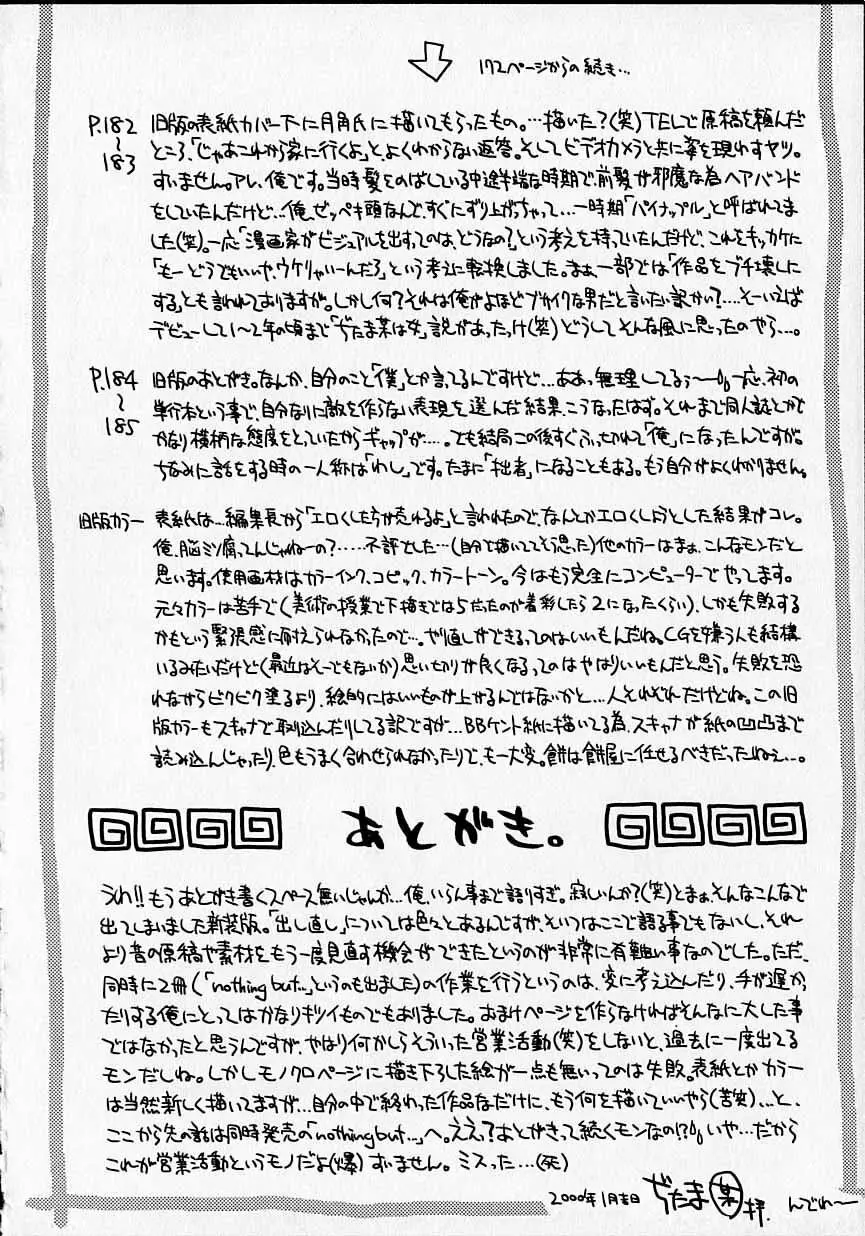 172ページからの続き…
P.182 旧版の表紙カバー下に月角氏に描いてもらったもの。…描いた?(笑)TELで原稿を頼んだ
〜 ところ、「じゃあこれから家に行くよ」と、よくわからない返答。そしてビデオカメラと共に姿を現わすヤツ。
183 すいません。アレ、俺です。当時髪をのばしている中途半端な時期で前髪が邪魔な為ヘアバンド
をしていたんだけど…俺、ゼッペキ頭なんで、すぐにずり上がっちゃって…一時期「パイナップル」と呼ばれてま
した(笑)。一応「漫画家がビジュアルを出すってのは、どうなの?」という考えを持っていたんだけど、これをキッカケに
「もーどうでもいいや、ウケりゃいーんだろ」という考えに転換しました。まぁ、一部では「作品をブチ壊しに
する」とも言われておりますが。しかし何?それは俺がよほどブサイクな男だと言いたい訳かい?…。そーいえば
デビューして1〜2年の頃まで「ぢたま某は女」説があったっけ(笑)どうしてそんな風に思ったのやら…。
P.184 旧版のあとがき。なんか、自分のこと「僕」とか言ってるんですけど…ああっ無理してるぅ〜 一応、初の
〜 単行本という事で、自分なりに敵を作らない表現を選んだ結果、こうなったはず。それまで同人誌とかで
185 かなり横柄な態度をとっていたからギャップが…。でも結局この後すぐふっきれて「俺」になったんですが。
ちなみに話をする時の一人称は「わし」です。たまに「拙者」になることもある。もう自分がよくわかりません。
旧版カラー 表紙は…編集長から「エロくした方が売れるよ」と言われたので、なんとかエロくしようとした結果がコレ。
俺、脳ミソ腐ってんじゃねーの?……不評でした…(自分で描いててそう思った)他のカラーはまぁ、こんなモンだと
思います。使用画材はカラーインク、コピック、カラートーン。今はもう完全にコンピューターでやってます。
元々カラーは苦手で(美術の授業で下描きでは5だったのが着彩したら2になったくらい)、しかも失敗する
かもという緊張感に耐えられなかったので…。やり直しができるってのはいいもんだね。CGを嫌う人も結構
いるみたいだけど(最近はそーでもないか)思い切りが良くなるってのはやはりいいもんだと思う。失敗を恐
れながらビクビク塗るより、絵的にはいいものが上がるんではないかと…人それぞれだけどね。この旧
版カラーもスキャナで取り込んだりしてる訳ですが…BBケント紙に描いてる為、スキャナが紙の凹凸まで
読み込んじゃったり、色もうまく合わせられなかったりで、もー大変。餅は餅屋に任せるべきだったねぇ…。
あとがき。
うわ!!もうあとがき書くスペース無いじゃんか…俺、いらん事まで語りすぎ。寂しいんか?(笑)とまぁ、そんなこんなで
出てしまいました新装版。「出し直し」については色々とあるんですが、そいつはここで語る事でもないし、それ
より昔の原稿や素材をもう一度見直す機会ができたというのが非常に有難い事なのでした。ただ、
同時に2冊(「nothing but…」というのも出ました)の作業を行うというのは、変に考え込んだり、手が遅かっ
たりする俺にとってはかなりキツイものでもありました。おまけページを作らなければそんなに大した事
ではなかったと思うんですが、やはり何かしらそういった営業活動(笑)をしないと、過去に一度出てる
モンだしね。しかしモノクロページに描き下ろした絵が一点も無いってのは失敗。表紙とかカラー
は当然新しく描いてますが…自分の中で終わった作品なだけに、もう何を描いていいやら(苦笑)…と、
ここから先の話は同時発売の「nothing but…」へ。ええっ?あとがきって続くモンなの!?いや…だから
これが営業活動というモノだよ(爆)すいません。ミスった…(死)
2000年1月吉日 ぢたま某 拝. んでわ〜